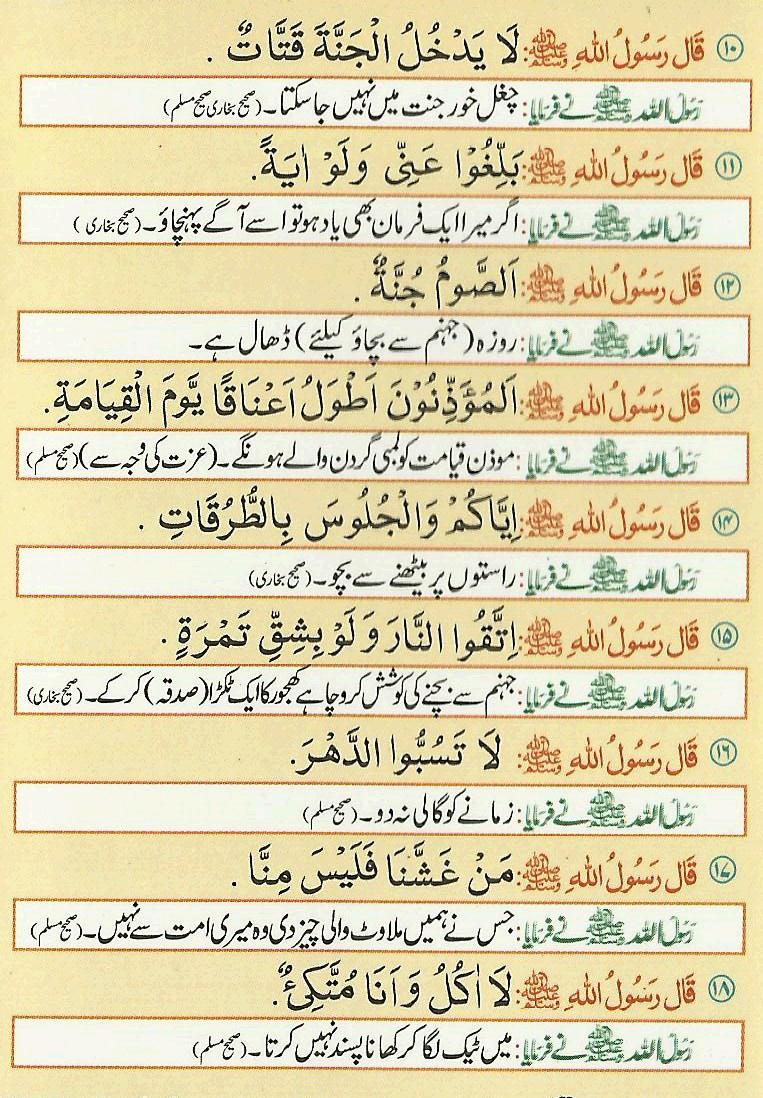 ۱۰ قَالَ رَسُولُ اللهِ ﷺ: لَا يَدْخُلُ الْجَنَّةَ قَتَّاتٌ .
رَسُولُ اللہ ﷺ نے فرمایا: چغل خور جنت میں نہیں جا سکتا۔ (صحیح بخاری صحیح مسلم)
۱۱ قَالَ رَسُولُ اللهِ ﷺ: بَلِّغُوْا عَنِّىْ وَلَوْ اٰيَةً.
رَسُولُ اللہ ﷺ نے فرمایا: اگر میرا ایک فرمان بھی یاد ہو تو اسے آگے پہنچاؤ۔ (صحیح بخاری)
۱۲ قَالَ رَسُولُ اللهِ ﷺ: اَلصَّومُ جُنَّةٌ .
رَسُولُ اللہ ﷺ نے فرمایا: روزہ (جہنم سے بچاؤ کیلئے) ڈھال ہے۔
۱۳ قَالَ رَسُولُ اللهِ ﷺ: اَلْمُؤَذِّنُوْنَ اَطْوَلُ اَعْنَاقًا يَّوْمَ الْقِيَامَةِ.
رَسُولُ اللہ ﷺ نے فرمایا: موذن قیامت کو لمبی گردن والے ہونگے۔ (عزت کی وجہ سے) (صحیح مسلم)
۱۴ قَالَ رَسُولُ اللهِ ﷺ: اِيَّاكُمْ وَالْجُلُوسَ بِالطُّرُقَاتِ .
رَسُولُ اللہ ﷺ نے فرمایا: راستوں پر بیٹھنے سے بچو۔ (صحیح بخاری)
۱۵ قَالَ رَسُولُ اللهِ ﷺ: اِتَّقُوا النَّارَ وَلَوْ بِشِقِّ تَمْرَةٍ .
رَسُولُ اللہ ﷺ نے فرمایا: جہنم سے بچنے کی کوشش کرو چاہے کھجور کا ایک ٹکڑا (صدقہ) کر کے۔ (صحیح بخاری)
۱۶ قَالَ رَسُولُ اللهِ ﷺ: لَا تَسُبُّوا الدَّهْرَ.
رَسُولُ اللہ ﷺ نے فرمایا: زمانے کو گالی نہ دو۔ (صحیح مسلم)
۱۷ قَالَ رَسُولُ اللهِ ﷺ: مَنْ غَشَّنَا فَلَيْسَ مِنَّا .
رَسُولُ اللہ ﷺ نے فرمایا: جس نے ہمیں ملاوٹ والی چیز دی وہ میری امت سے نہیں۔ (صحیح مسلم)
۱۸ قَالَ رَسُولُ اللهِ ﷺ: لَا اٰكُلُ وَ اَنَا مُتَّكِئٌ.
رَسُولُ اللہ ﷺ نے فرمایا: میں ٹیک لگا کر کھانا پسند نہیں کرتا۔ (صحیح مسلم)